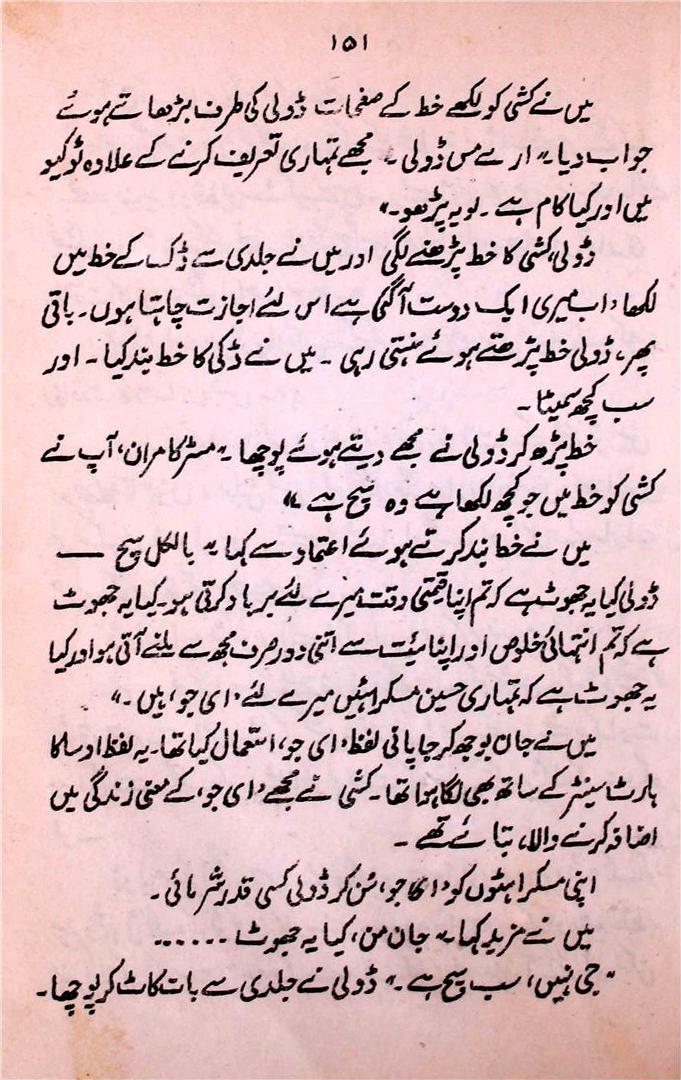 ۱۵۱
میں نے کشی کو لکھے خط کے صفحات ڈولی کی طرف بڑھاتے ہوئے
جواب دیا۔ "ارے مس ڈولی۔ مجھے تمہاری تعریف کرنے کے علاوہ ٹوکیو
میں اور کیا کام ہے۔ لو یہ پڑھو۔"
ڈولی، کشی کا خط پڑھنے لگی اور میں نے جلدی سے ڈک کے خط میں
لکھا، اب میری ایک دوست آ گئی ہے اس لئے اجازت چاہتا ہوں۔ باقی
پھر، ڈولی خط پڑھتے ہوئے ہنستی رہی۔ میں نے ڈکی کا خط بند کیا۔ اور
سب کچھ سمیٹا۔
خط پڑھ کر ڈولی نے مجھے دیتے ہوئے پوچھا۔ "مسٹر کامران، آپ نے
کشی کو خط میں جو کچھ لکھا ہے وہ سچ ہے۔"
میں نے خط بند کرتے ہوئے اعتماد سے کہا۔ "بالکل سچ —
ڈولی کیا یہ جھوٹ ہے کہ تم اپنا قیمتی وقت میرے لئے برباد کرتی ہو۔ کیا یہ جھوٹ
ہے کہ تم انتہائی خلوص اور اپنائیت سے اتنی دور صرف مجھ سے ملنے آتی ہو اور کیا
یہ جھوٹ ہے کہ تمہاری حسین مسکراہٹیں میرے لئے 'ای جو' ہیں۔"
میں نے جان بوجھ کر جاپانی لفظ 'ای جو' استعمال کیا تھا۔ یہ لفظ اوساکا
ہارٹ سینٹر کے ساتھ بھی لگا ہوا تھا۔ کشی نے مجھے 'ای جو' کے معنی زندگی میں
اضافہ کرنے والا، بتائے تھے۔
اپنی مسکراہٹوں کو جو، سُن کر ڈولی کسی قدر شرمائی۔
میں نے مزید کہا۔ "جان من، کیا یہ جھوٹ ......
"جی نہیں، سب سچ ہے۔" ڈولی نے جلدی سے بات کاٹ کر پوچھا۔